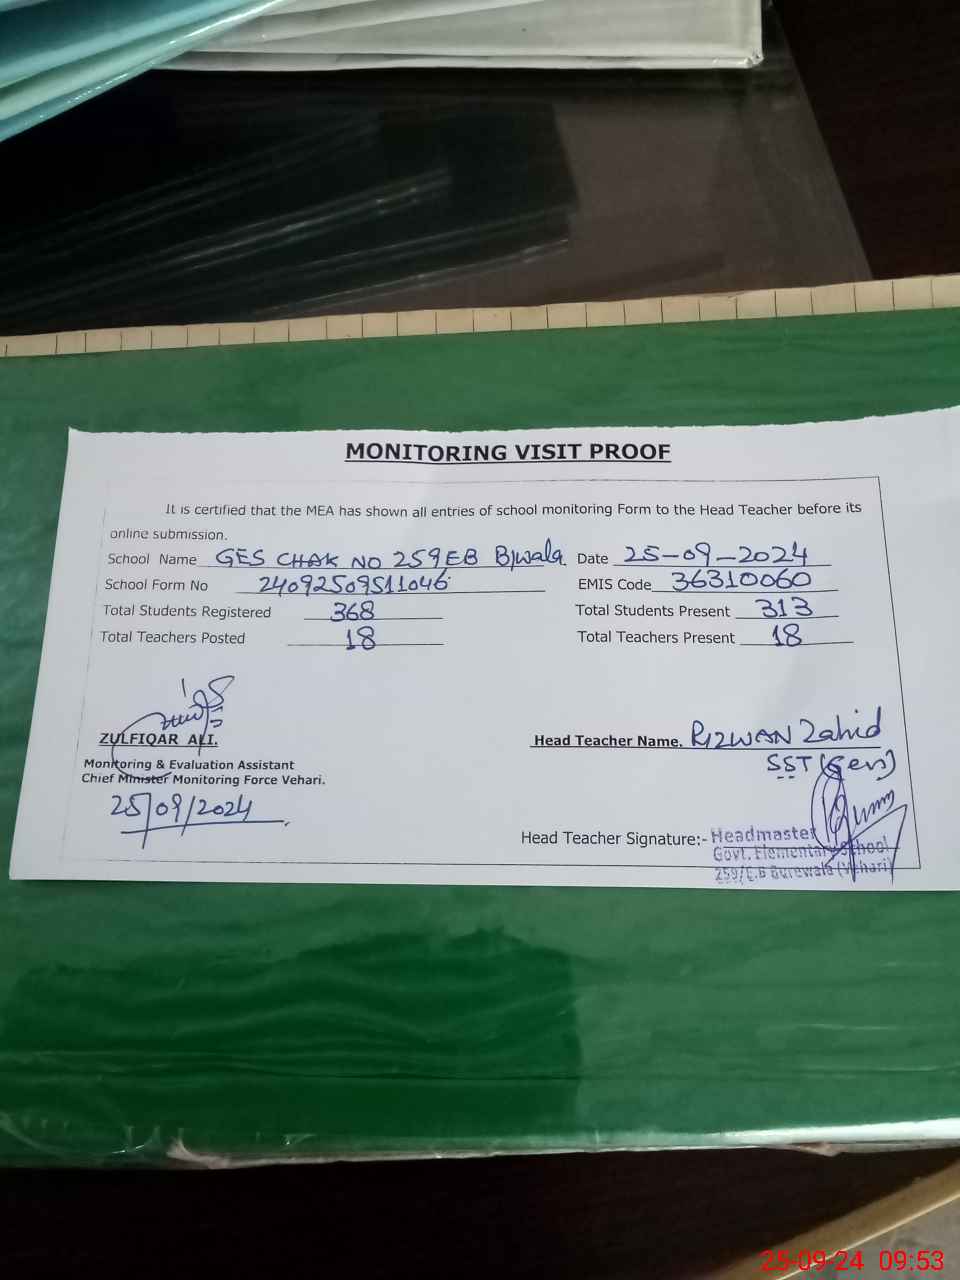 MONITORING VISIT PROOF
It is certified that the MEA has shown all entries of school monitoring Form to the Head Teacher before its
online submission.
School Name GES CHAK NO 259EB B/wala Date 25-09-2024
School Form No 24092509511046 EMIS Code 36310060
Total Students Registered 368 Total Students Present 313
Total Teachers Posted 18 Total Teachers Present 18
ZULFIQAR ALI.
Monitoring & Evaluation Assistant
Chief Minister Monitoring Force Vehari.
25/09/2024
Head Teacher Name. RIZWAN Zahid
SST (Gen)
Head Teacher Signature:- Headmaster
Govt. Elementary School
259/E.B Burewala (Vehari)
25-09-24 09:53